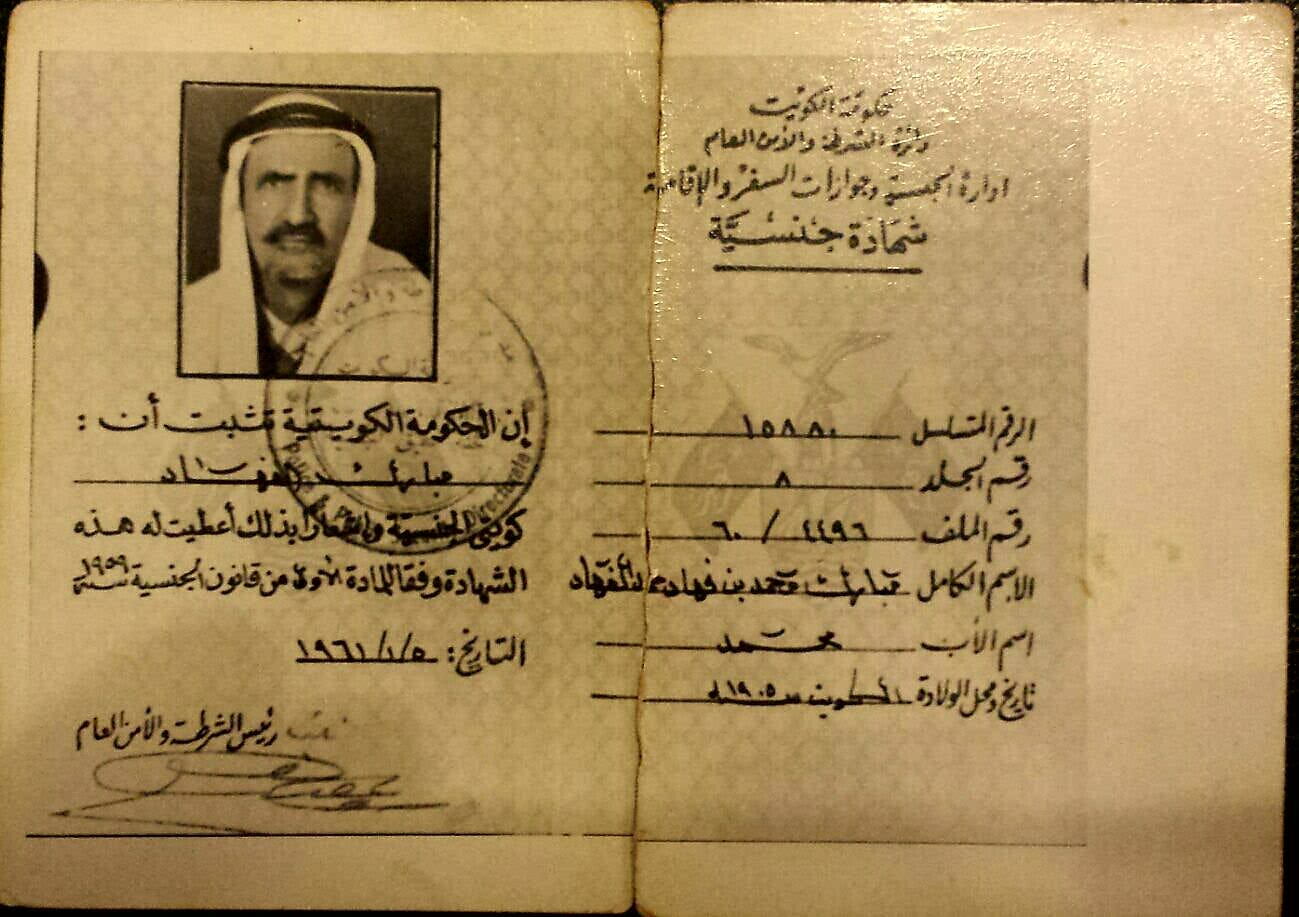 حكومة الكويت
دائرة الشرطة والأمن العام
ادارة الجنسية وجوازات السفر والإقامة
شهادة جنسية
الرقم المتسلسل ١٥٨٨٠
رقم الجلد ٨
رقم الملف ٤٤٩٦ / ٦٠
الاسم الكامل مبارك محمد بن فهاد الفهاد
اسم الأب محمد
تاريخ ومحل الولادة الكويت سنة ١٩٠٥
إن الحكومة الكويتية تثبت أن :
مبارك الفهاد
كويتي الجنسية وإشعارا بذلك أعطيت له هذه
الشهادة وفقا للمادة الأولى من قانون الجنسية سنة ١٩٥٩
التاريخ : ١٩٦١/١/٥
رئيس الشرطة والأمن العام